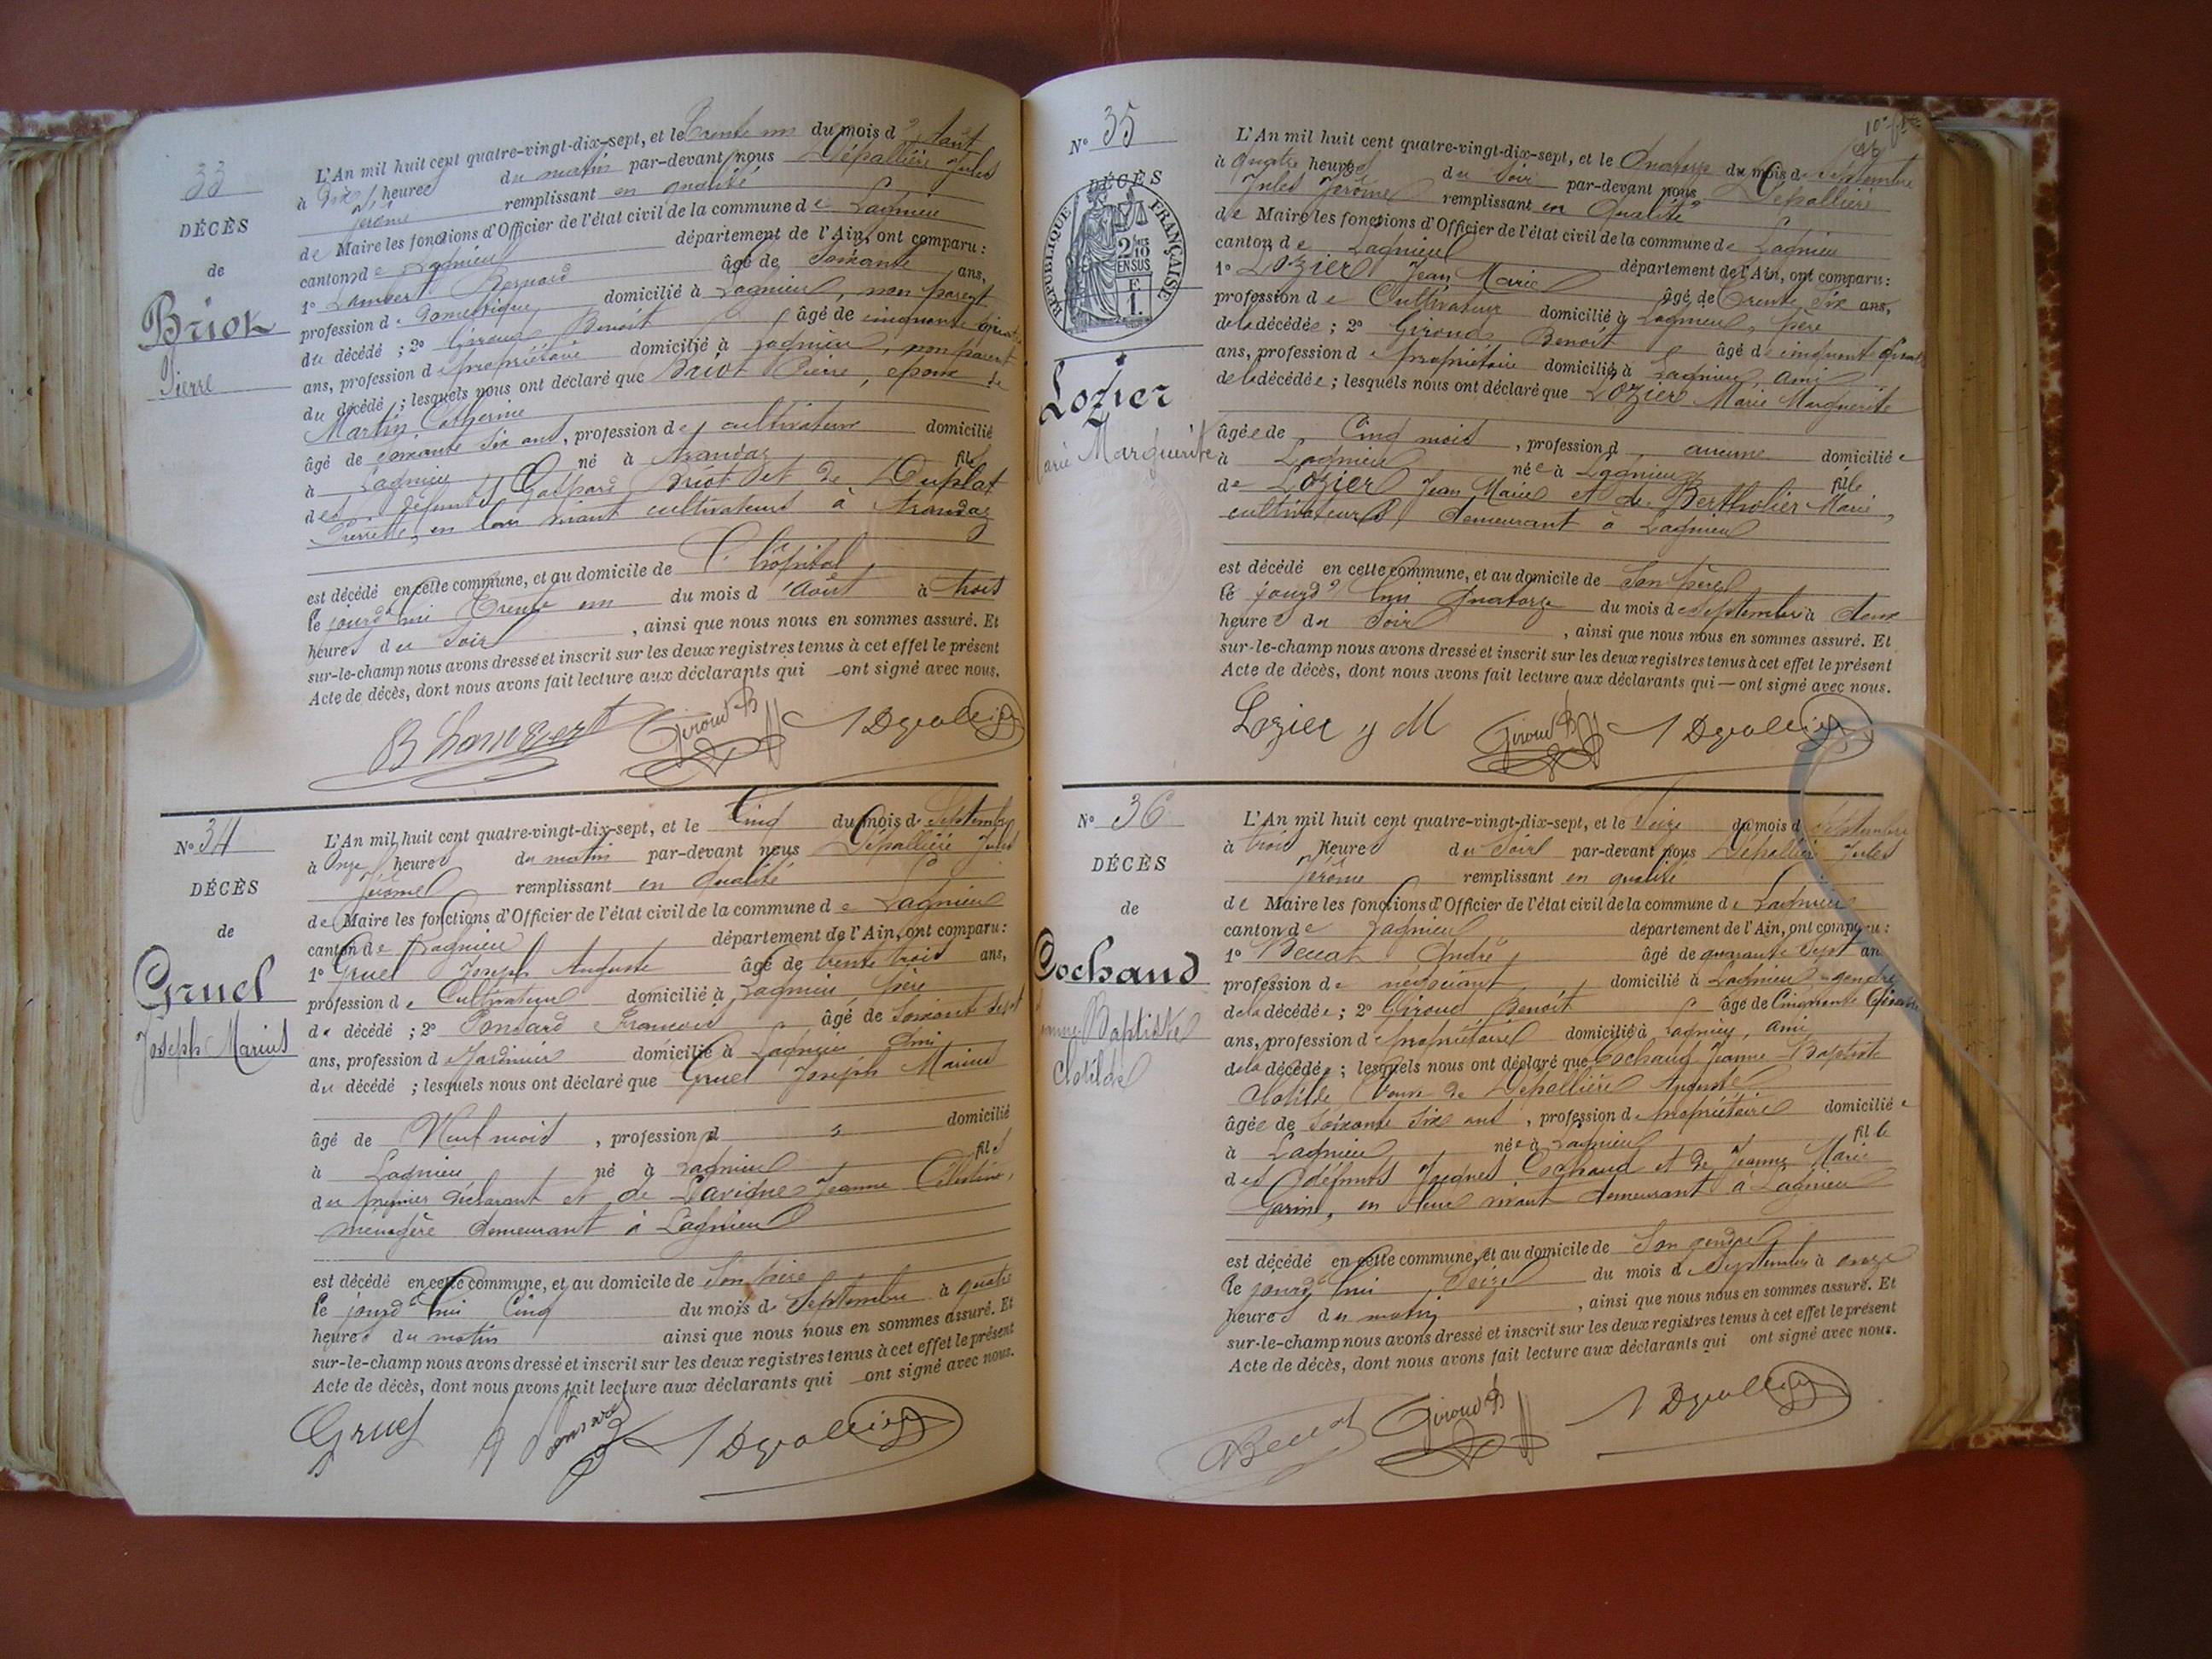 33
DÉCÈS
de
Briot
Pierre
L'An mil huit cent quatre-vingt-dix-sept, et le Trente un du mois d'Août
à Dix heures du matin par-devant nous Dépallière Jules
Jérôme remplissant en qualité
de Maire les fonctions d'Officier de l'état civil de la commune de Lagnieu
canton de Lagnieu département de l'Ain, ont comparu :
1° Lambert Bernard âgé de Soixante ans,
profession de Domestique domicilié à Lagnieu, non parent
du décédé ; 2° Giroud Benoît âgé de cinquante
ans, profession de propriétaire domicilié à Lagnieu, non parent
du décédé ; lesquels nous ont déclaré que Briot Pierre, époux de
Martin Catherine
âgé de soixante six ans, profession de cultivateur domicilié
à Lagnieu né à Arandaz fils
des défunts Gaspard Briot et de Duplat
Pierrette, en leur vivant cultivateurs à Arandaz
est décédé en cette commune, et au domicile de L'hôpital
le jourd'hui Trente un du mois d'Août à trois
heures du Soir , ainsi que nous nous en sommes assuré. Et
sur-le-champ nous avons dressé et inscrit sur les deux registres tenus à cet effet le présent
Acte de décès, dont nous avons fait lecture aux déclarants qui ont signé avec nous.
B Lambert Giroud B J Dépallière
N° 34
DÉCÈS
de
Gruel
Joseph Marius
L'An mil huit cent quatre-vingt-dix-sept, et le Cinq du mois de Septembre
à Onze heures du matin par-devant nous Dépallière Jules
Jérôme remplissant en qualité
de Maire les fonctions d'Officier de l'état civil de la commune de Lagnieu
canton de Lagnieu département de l'Ain, ont comparu :
1° Gruel Joseph Auguste âgé de trente trois ans,
profession de Cultivateur domicilié à Lagnieu, père
du décédé ; 2° Ponsard François âgé de Soixante sept
ans, profession de Jardinier domicilié à Lagnieu Ami
du décédé ; lesquels nous ont déclaré que Gruel Joseph Marius
âgé de Neuf mois , profession d domicilié
à Lagnieu né à Lagnieu fils
du premier déclarant et de Lavigne Jeanne Célestine,
ménagère demeurant à Lagnieu
est décédé en cette commune, et au domicile de Son père
le jourd'hui Cinq du mois de Septembre à quatre
heures du matin ainsi que nous nous en sommes assuré. Et
sur-le-champ nous avons dressé et inscrit sur les deux registres tenus à cet effet le présent
Acte de décès, dont nous avons fait lecture aux déclarants qui ont signé avec nous.
Gruel Ponsard J Dépallière
N° 35
DÉCÈS
RÉPUBLIQUE FRANÇAISE
2/10 EN SUS
Lozier
Marie Marguerite
L'An mil huit cent quatre-vingt-dix-sept, et le Quatorze du mois de Septembre
à quatre heures du Soir par-devant nous Dépallière
Jules Jérôme remplissant en qualité
de Maire les fonctions d'Officier de l'état civil de la commune de Lagnieu
canton de Lagnieu département de l'Ain, ont comparu :
1° Lozier Jean Marie âgé de Trente Six ans,
profession de Cultivateur domicilié à Lagnieu, père
de la décédée ; 2° Giroud Benoît âgé de cinquante
ans, profession de propriétaire domicilié à Lagnieu, ami
de la décédée ; lesquels nous ont déclaré que Lozier Marie Marguerite
âgée de Cinq mois , profession d aucune domiciliée
à Lagnieu née à Lagnieu fille
de Lozier Jean Marie et de Bertholier Marie,
cultivateurs demeurant à Lagnieu
est décédé en cette commune, et au domicile de Son père
le jourd'hui Quatorze du mois de Septembre à deux
heures du Soir , ainsi que nous nous en sommes assuré. Et
sur-le-champ nous avons dressé et inscrit sur les deux registres tenus à cet effet le présent
Acte de décès, dont nous avons fait lecture aux déclarants qui — ont signé avec nous.
Lozier J M Giroud B J Dépallière
N° 36
DÉCÈS
de
Cochaud
Jeanne Baptiste
Clotilde
L'An mil huit cent quatre-vingt-dix-sept, et le Seize du mois de Septembre
à trois heures du Soir par-devant nous Dépallière Jules
Jérôme remplissant en qualité
de Maire les fonctions d'Officier de l'état civil de la commune de Lagnieu
canton de Lagnieu département de l'Ain, ont comparu :
1° Beccat André, âgé de quarante sept ans
profession de négociant domicilié à Lagnieu gendre
de la décédée ; 2° Giroud Benoît âgé de Cinquante
ans, profession de propriétaire domicilié à Lagnieu, ami
de la décédée ; lesquels nous ont déclaré que Cochaud Jeanne-Baptiste
Clotilde Veuve de Dépallière Auguste
âgée de Soixante Six ans , profession de propriétaire domiciliée
à Lagnieu née à Lagnieu fille
des défunts Jacques Cochaud et de Jeanne Marie
Garin, en leur vivant demeurant à Lagnieu
est décédé en cette commune, et au domicile de Son gendre
le jourd'hui Seize du mois de Septembre à onze
heures du matin , ainsi que nous nous en sommes assuré. Et
sur-le-champ nous avons dressé et inscrit sur les deux registres tenus à cet effet le présent
Acte de décès, dont nous avons fait lecture aux déclarants qui ont signé avec nous.
Beccat Giroud B J Dépallière